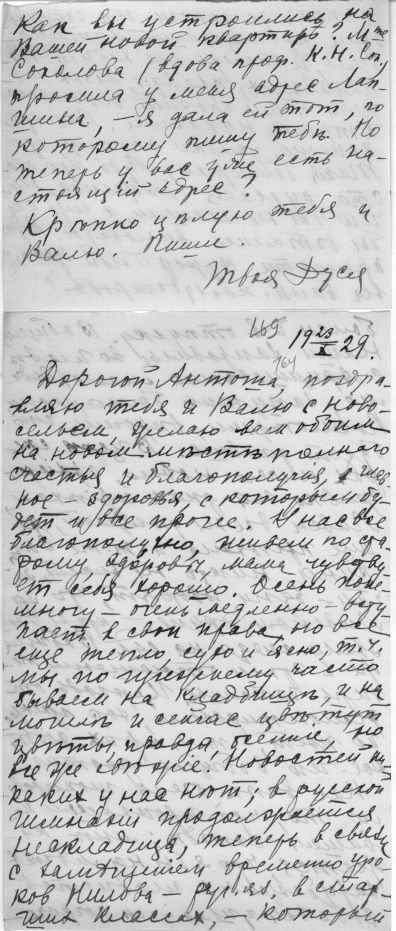 Как вы устроились на
Вашей новой квартирѣ? М-me
Соколова (вдова проф. К. Н. Сок.)
просила у меня адрес Лап-
шина, – я дала ей тот, по
которому пишу тебѣ. Но
теперь у вас уже есть на-
стоящий адрес?
Крѣпко цѣлую тебя и
Валю. Пиши.
Твоя Дуся
169
19 23/X 29.
164
Дорогой Антоша, поздра-
вляю тебя и Валю с ново-
сельем, желаю вам обоим
на новом мѣстѣ полного
счастья и благополучия, а глав
ное – здоровья, с которым бу-
дет и все прочее. У нас все
благополучно, живем по ста-
рому, здоровы, мама чувству
ет себя хорошо. Осень поне-
многу – очень медленно – всту
пает в свои права, но все
еще тепло, сухо и ясно, т. ч.
мы по прежнему часто
бываем на кладбищѣ, и на
могилѣ и сейчас цвѣтут
цвѣты, правда, осенние, но
все же свѣжие. Новостей ни-
каких у нас нѣт; в русской
гимназии продолжается
неакладица, теперь в связи
с замѣщением временно уро-
ков Нилова – рус. яз. в стар-
ших классах, – который